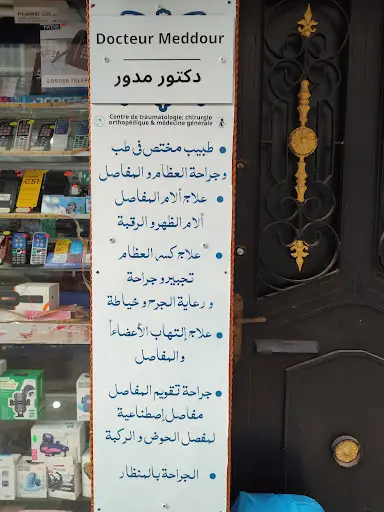 HUAWEI
Docteur Meddour
دكتور مدور
Centre de traumatologie; chirurgie
orthopédique & médecine générale
• طبيب مختص في طب
وجراحة العظام و المفاصل
• علاج ألام المفاصل
ألام الظهر و الرقبة
• علاج كسر العظام
تجبير و جراحة
و رعاية الجرح و خياطة
• علاج إلتهاب الأعضاءأ
والمفاصل
• جراحة تقويم المفاصل
مفاصل إصطناعية
لمفصل الحوض و الركبة
• الجراحة بالمنظار